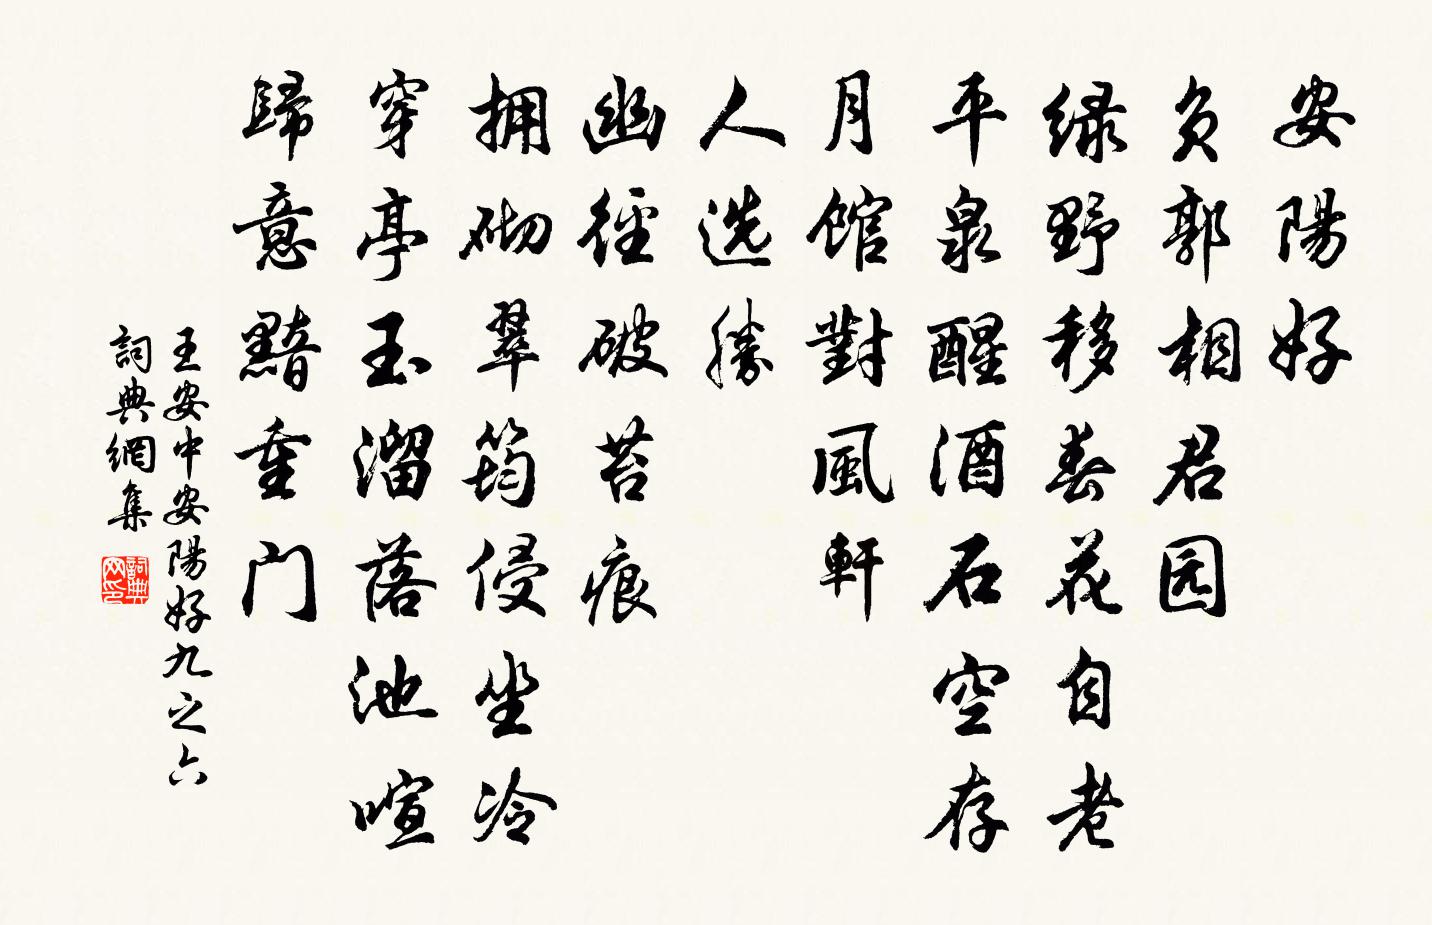 安陽好
负郭相君园
绿野移春花自老
平泉醒酒石空存
月馆對風軒
人选勝
幽徑破苔痕
拥砌翠筠侵坐冷
穿亭玉溜落池喧
歸意黯重门
王安中安陽好九之六
詞典網集
詞典网印